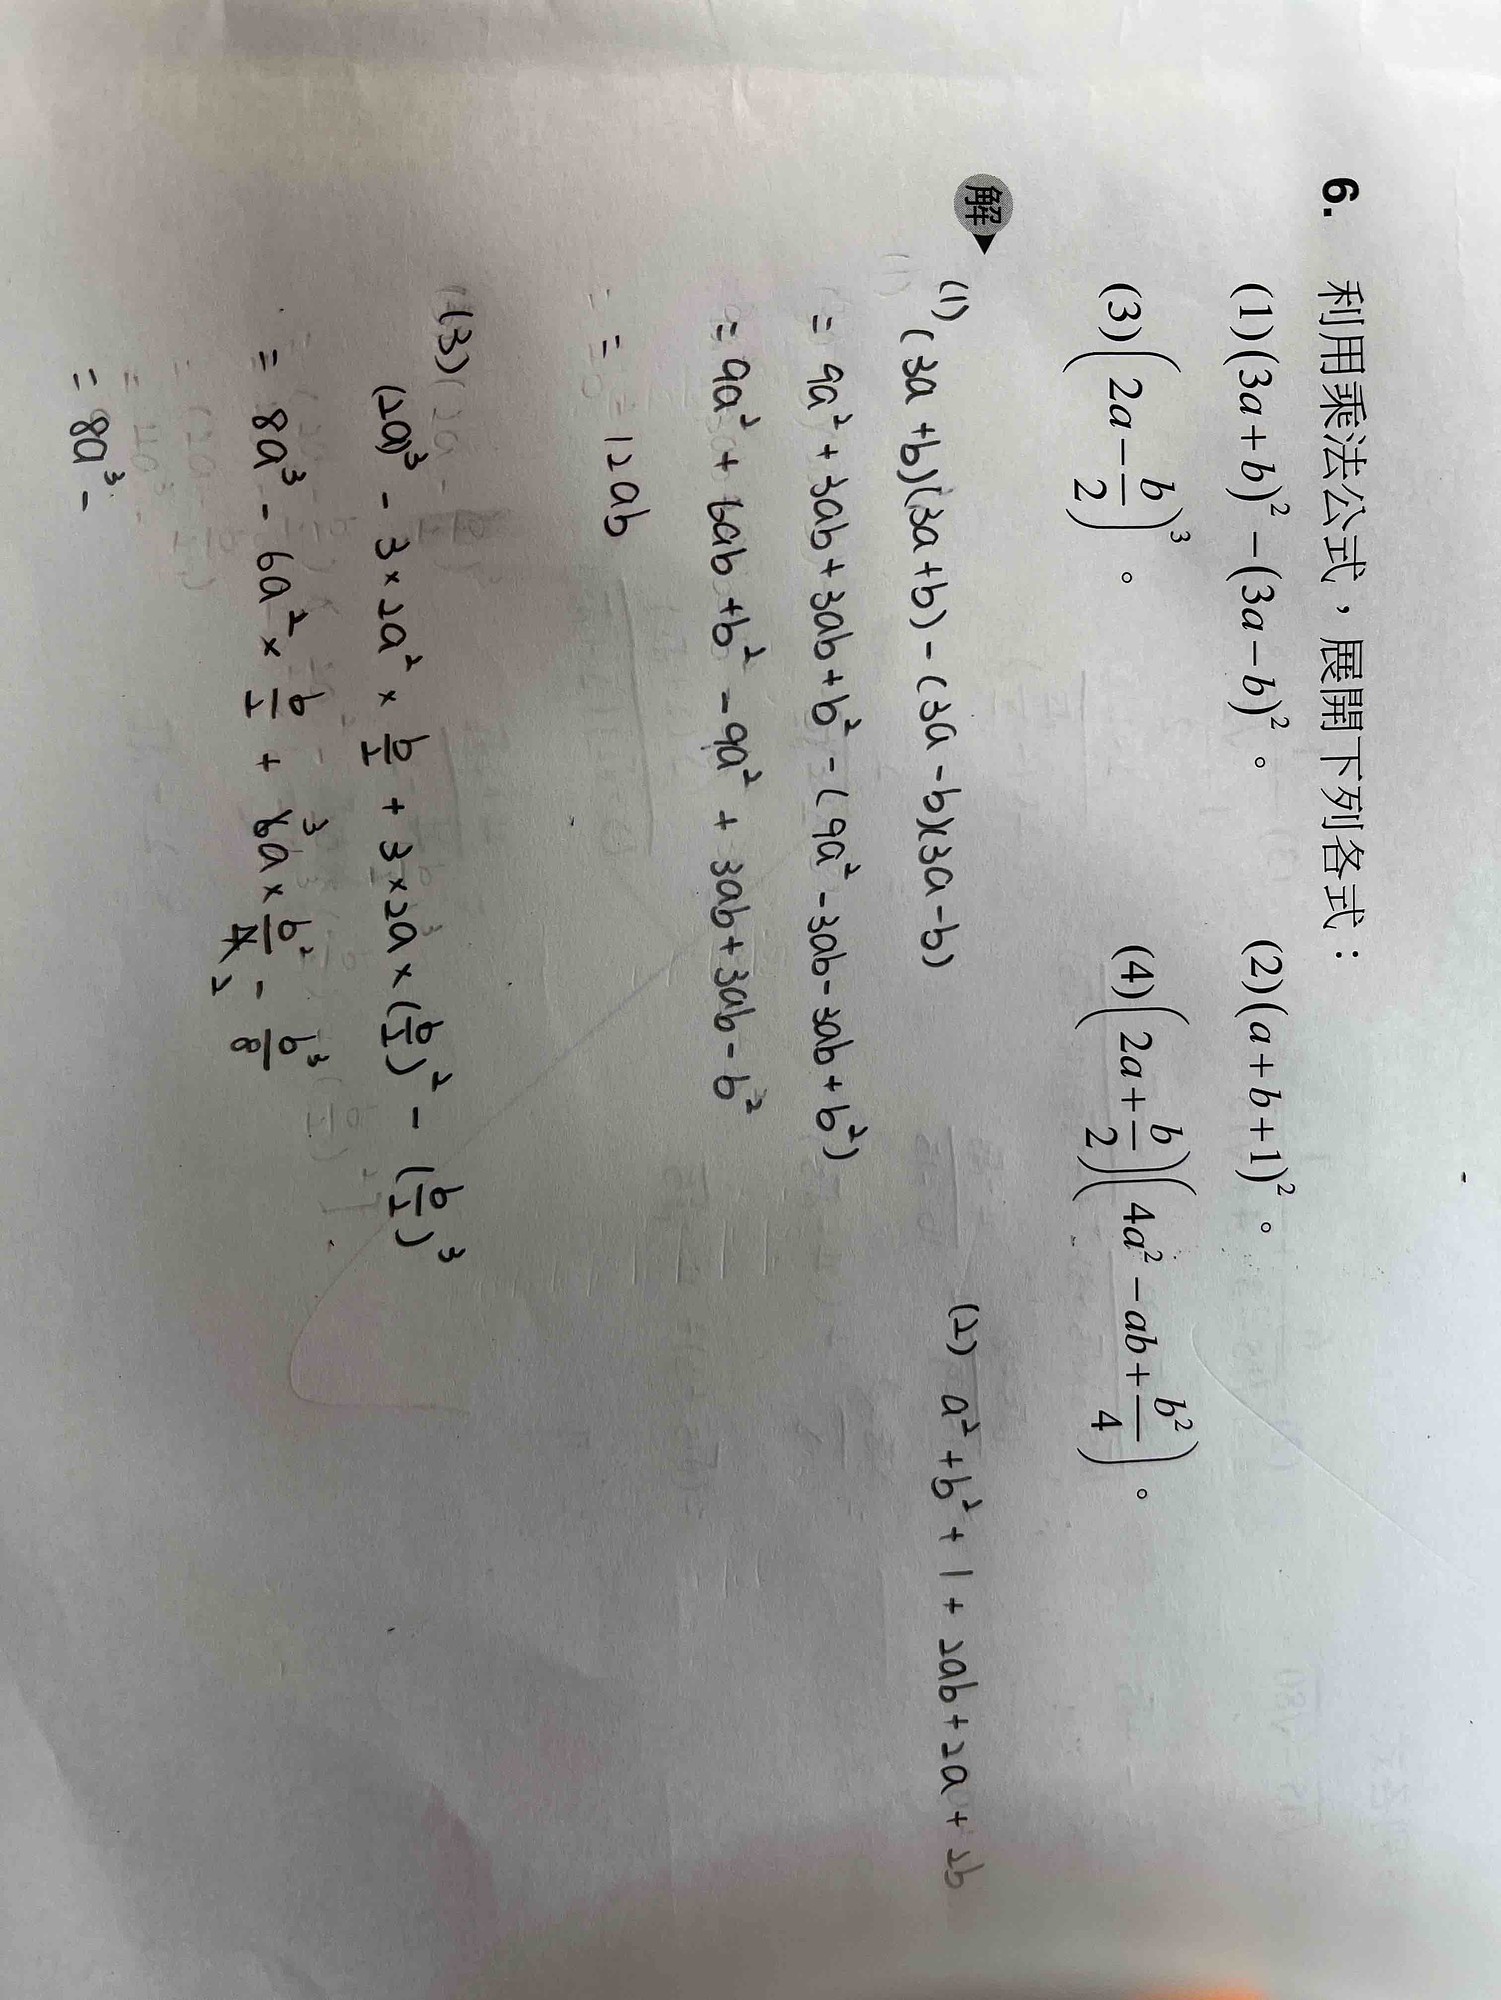 6. 利用乘法公式，展開下列各式：
(1)(3a+b)²-(3a-b)²。 (2)(a+b+1)²。
(3)(2a-b/2)³。 (4)(2a+b/2)(4a²-ab+b²/4)。
解
(1) (3a+b)(3a+b)-(3a-b)(3a-b)
= 9a²+3ab+3ab+b²-(9a²-3ab-3ab+b²)
= 9a²+6ab+b²-9a²+3ab+3ab-b²
= 12ab
(2) a²+b²+1+2ab+2a+2b
(3)
(2a)³-3×2a²×b/2+3×2a×(b/2)²-(b/2)³
= 8a³-6a²×b/2+6a×b²/4-b³/8
3
2
= 8a³-